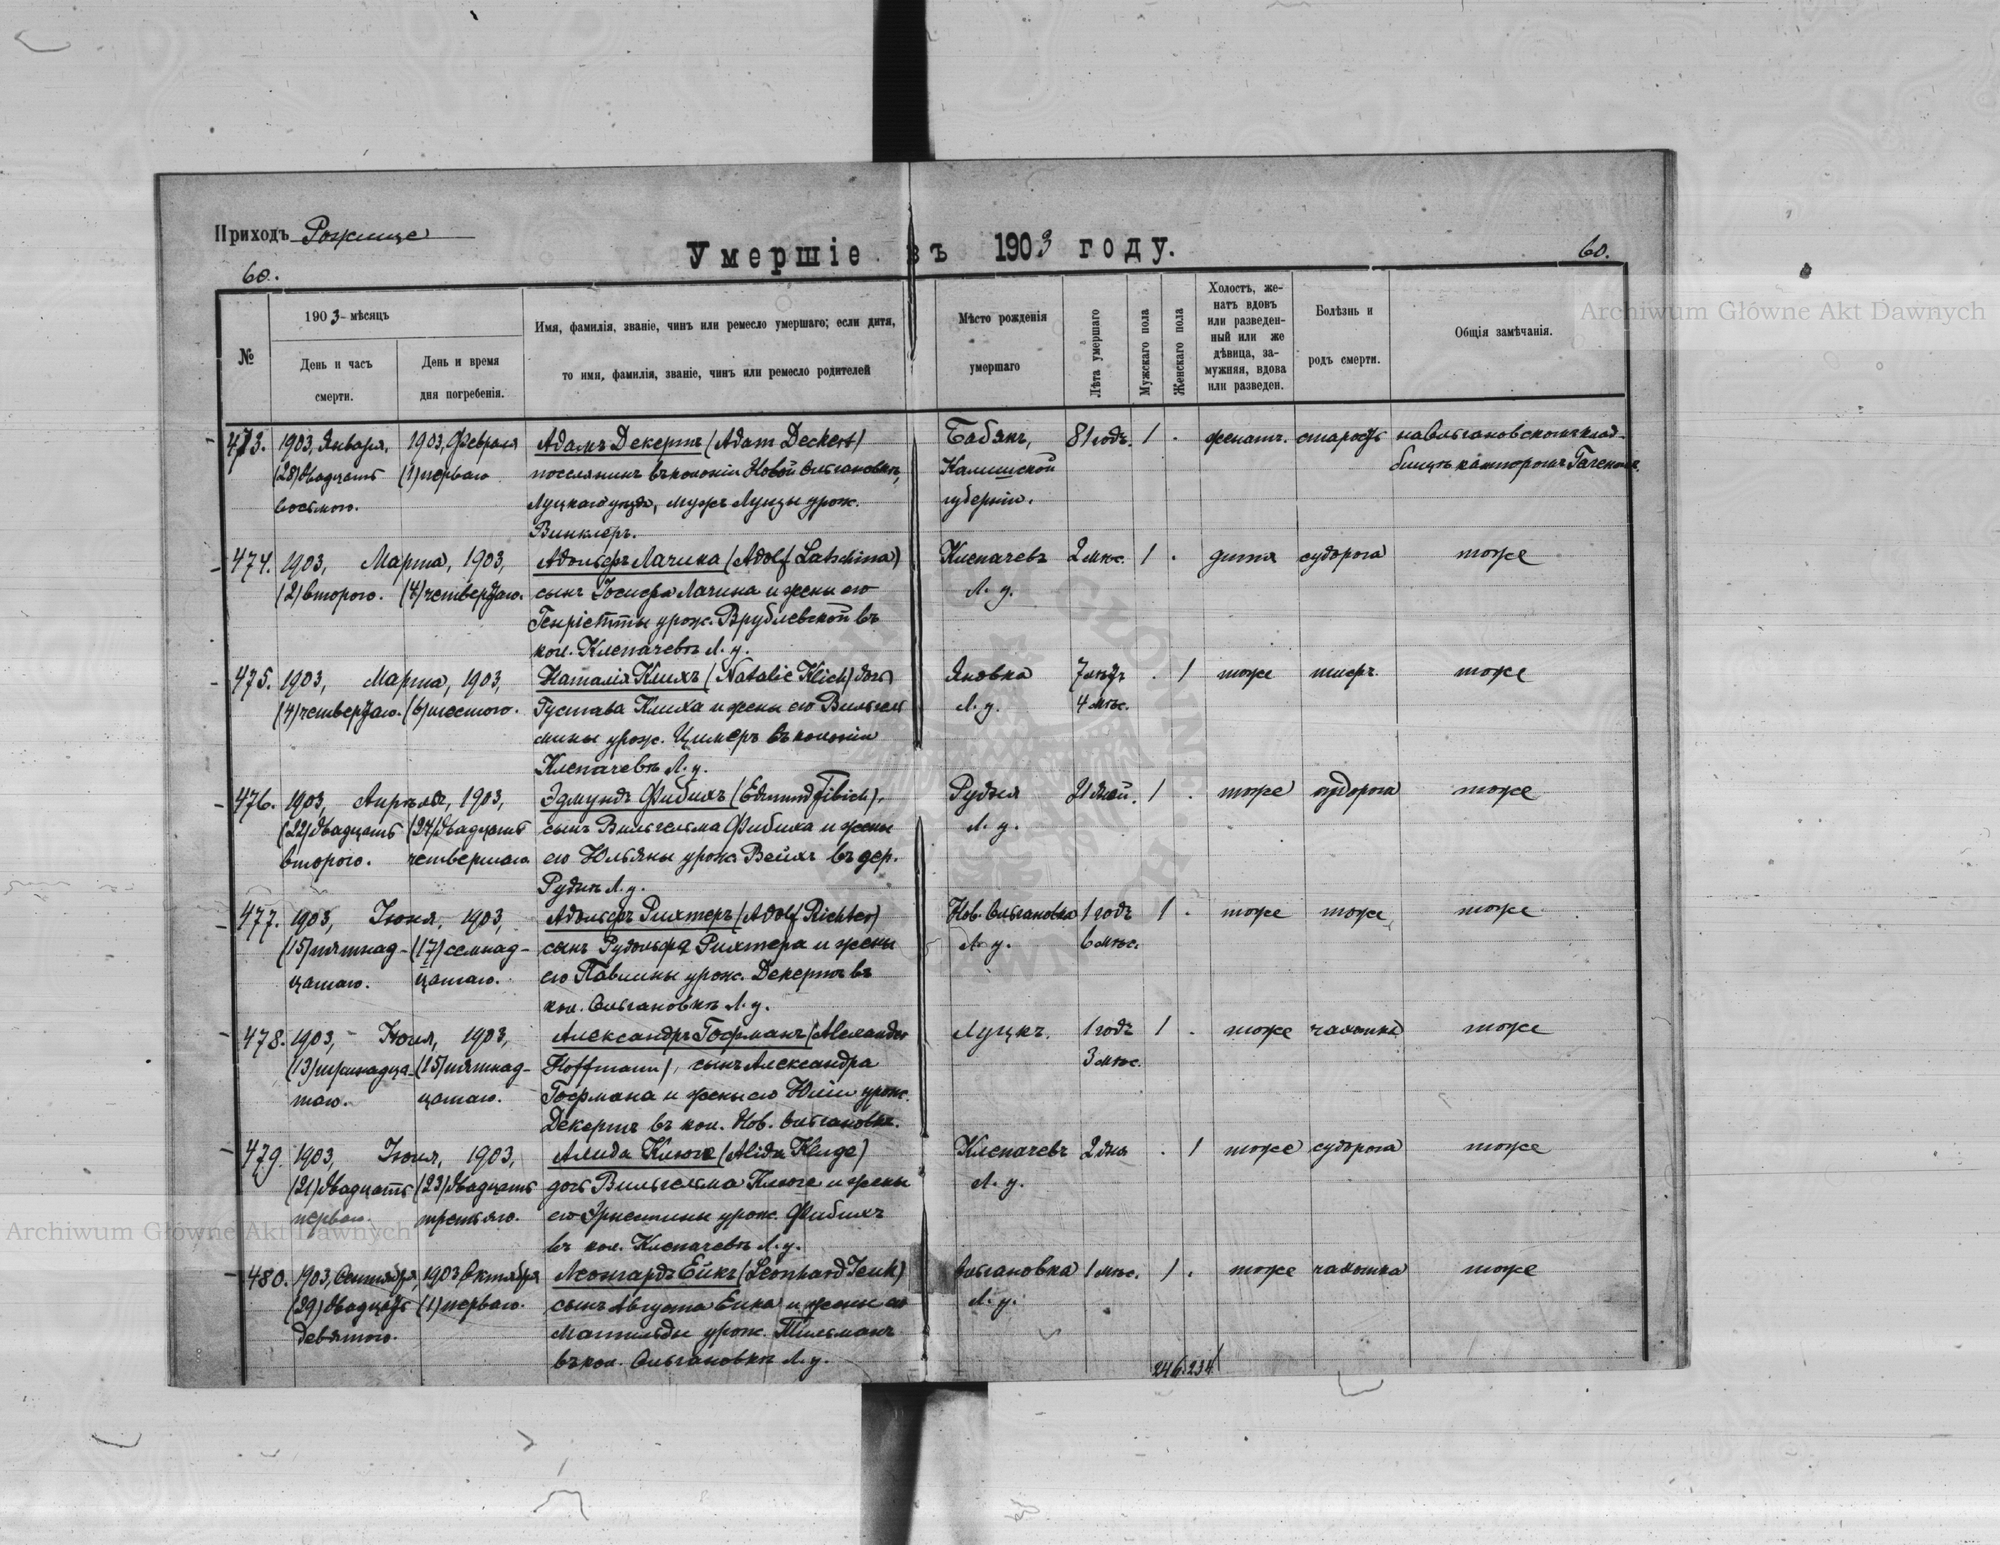 Приходъ Рожище
Умершіе въ 1903 году.
60.
60.
№
1903 мѣсяцъ
День и часъ смерти.
День и время дня погребенія.
Имя, фамилія, званіе, чинъ или ремесло умершаго; если дитя,
то имя, фамилія, званіе, чинъ или ремесло родителей
Мѣсто рожденія умершаго
Лѣта умершаго
Мужскаго пола
Женскаго пола
Холостъ, же-
натъ вдовъ
или разведен-
ный или же
дѣвица, за-
мужняя, вдова
или разведен.
Болѣзнь и
родъ смерти.
Общія замѣчанія.
473. 1903, Января, 1903, Февраля Адамъ Декертъ (Adam Deckert) Бабякъ, 81 годъ. 1 . женатъ. старость
(28) двадцать (1) перваго поселянинъ въ колоніи Новой Ольгановкѣ, Калишской
восьмого. Луцкаго уѣзда, мужъ Луизы урож. губерніи.
Винклеръ.
474. 1903, Марта, 1903, Адольфъ Лачина (Adolf Latschina) Клепачевъ 2 мѣс. 1 . дитя судорога тоже
(2) второго. (4) четвертаго. сынъ Іосифа Лачина и жены его Л. у.
Генріетты урож. Врублевской въ
кол. Клепачевѣ Л. у.
475. 1903, Марта, 1903, Наталія Клихъ (Natalie Klich) дочь Яновка 7 лѣтъ . 1 тоже тифъ. тоже
(4) четвертаго. (6) шестого. Густава Клиха и жены его Вильгель Л. у. 4 мѣс.
мины урож. Цимеръ въ колоніи
Клепачевѣ Л. у.
476. 1903, Апрѣля, 1903, Эдмундъ Фибихъ (Edmund Fibich), Рудня 21 дней. 1 . тоже судорога тоже
(22) двадцать (24) двадцать сынъ Вильгельма Фибиха и жены Л. у.
второго. четвертаго его Юльяны урож. Вейхъ въ дер.
Руднѣ Л. у.
477. 1903, Іюня, 1903, Адольфъ Рихтеръ (Adolf Richter) Нов. Ольгановка 1 годъ 1 . тоже тоже тоже
(15) пятнад- (17) семнад- сынъ Рудольфа Рихтера и жены Л. у. 6 мѣс.
цатаго. цатаго. его Павлины урож. Декертъ въ
кол. Ольгановкѣ Л. у.
478. 1903, Іюля, 1903, Александръ Гофманъ (Alexander Луцкъ. 1 годъ 1 . тоже тоже
(13) тринадца- (15) пятнад- Hoffmann), сынъ Александра 3 мѣс.
таго. цатаго. Гофмана и жены его Юліи урож.
Декертъ въ кол. Нов. Ольгановкѣ.
479. 1903, Іюля, 1903, Алида Клюге (Alida Kluge) Клепачевъ 2 дня . 1 тоже судорога тоже
(21) двадцать (23) двадцать дочь Вильгельма Клюге и жены Л. у.
перваго. третьяго. его Эрнестины урож. Фибихъ
въ кол. Клепачевѣ Л. у.
480. 1903, Сентября, 1903 Октября Леонгардъ Ейкъ (Leonhard Jeuk) Ольгановка 1 мѣс. 1 . тоже тоже
(29) двадцать (1) перваго. сынъ Августа Ейка и жены его Л. у.
девятого. Матильды урож. Тильманъ
въ кол. Ольгановкѣ Л. у.
246. 234
Archiwum Główne Akt Dawnych
Archiwum Główne Akt Dawnych